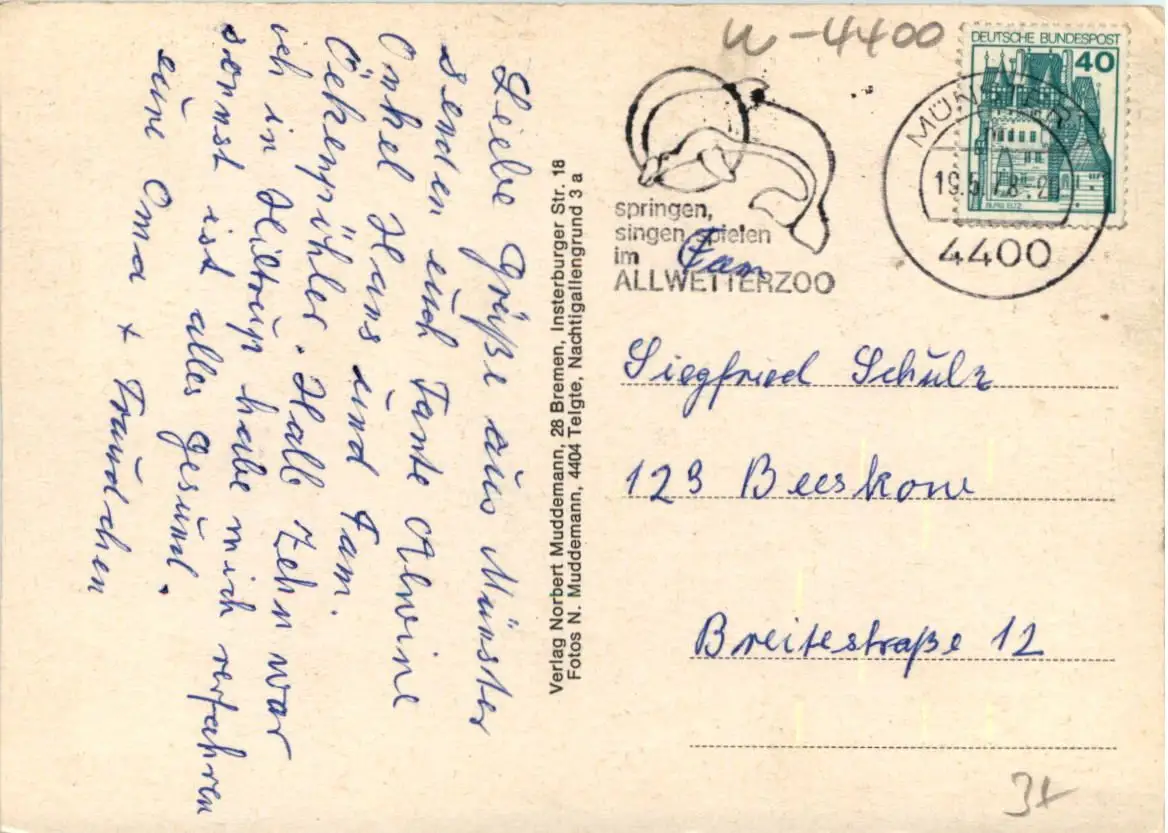 Liebe Grüße aus Münster
senden euch Tante Alwine
Onkel Hans und Fam.
Halb Zehn war
ich in Hiltrup habe mich verfahren
sonst ist alles gesund.
eure Oma + Traudchen
Verlag Norbert Muddemann, 28 Bremen, Insterburger Str. 18
Fotos N. Muddemann, 4404 Telgte, Nachtigallengrund 3 a
-4400
springen,
singen, spielen
im
ALLWETTERZOO
DEUTSCHE BUNDESPOST
40
BURG ELTZ
MÜNSTER
19.5.78-20
4400
Fam
Siegfried Schulz
123 Beeskow
Breitestraße 12